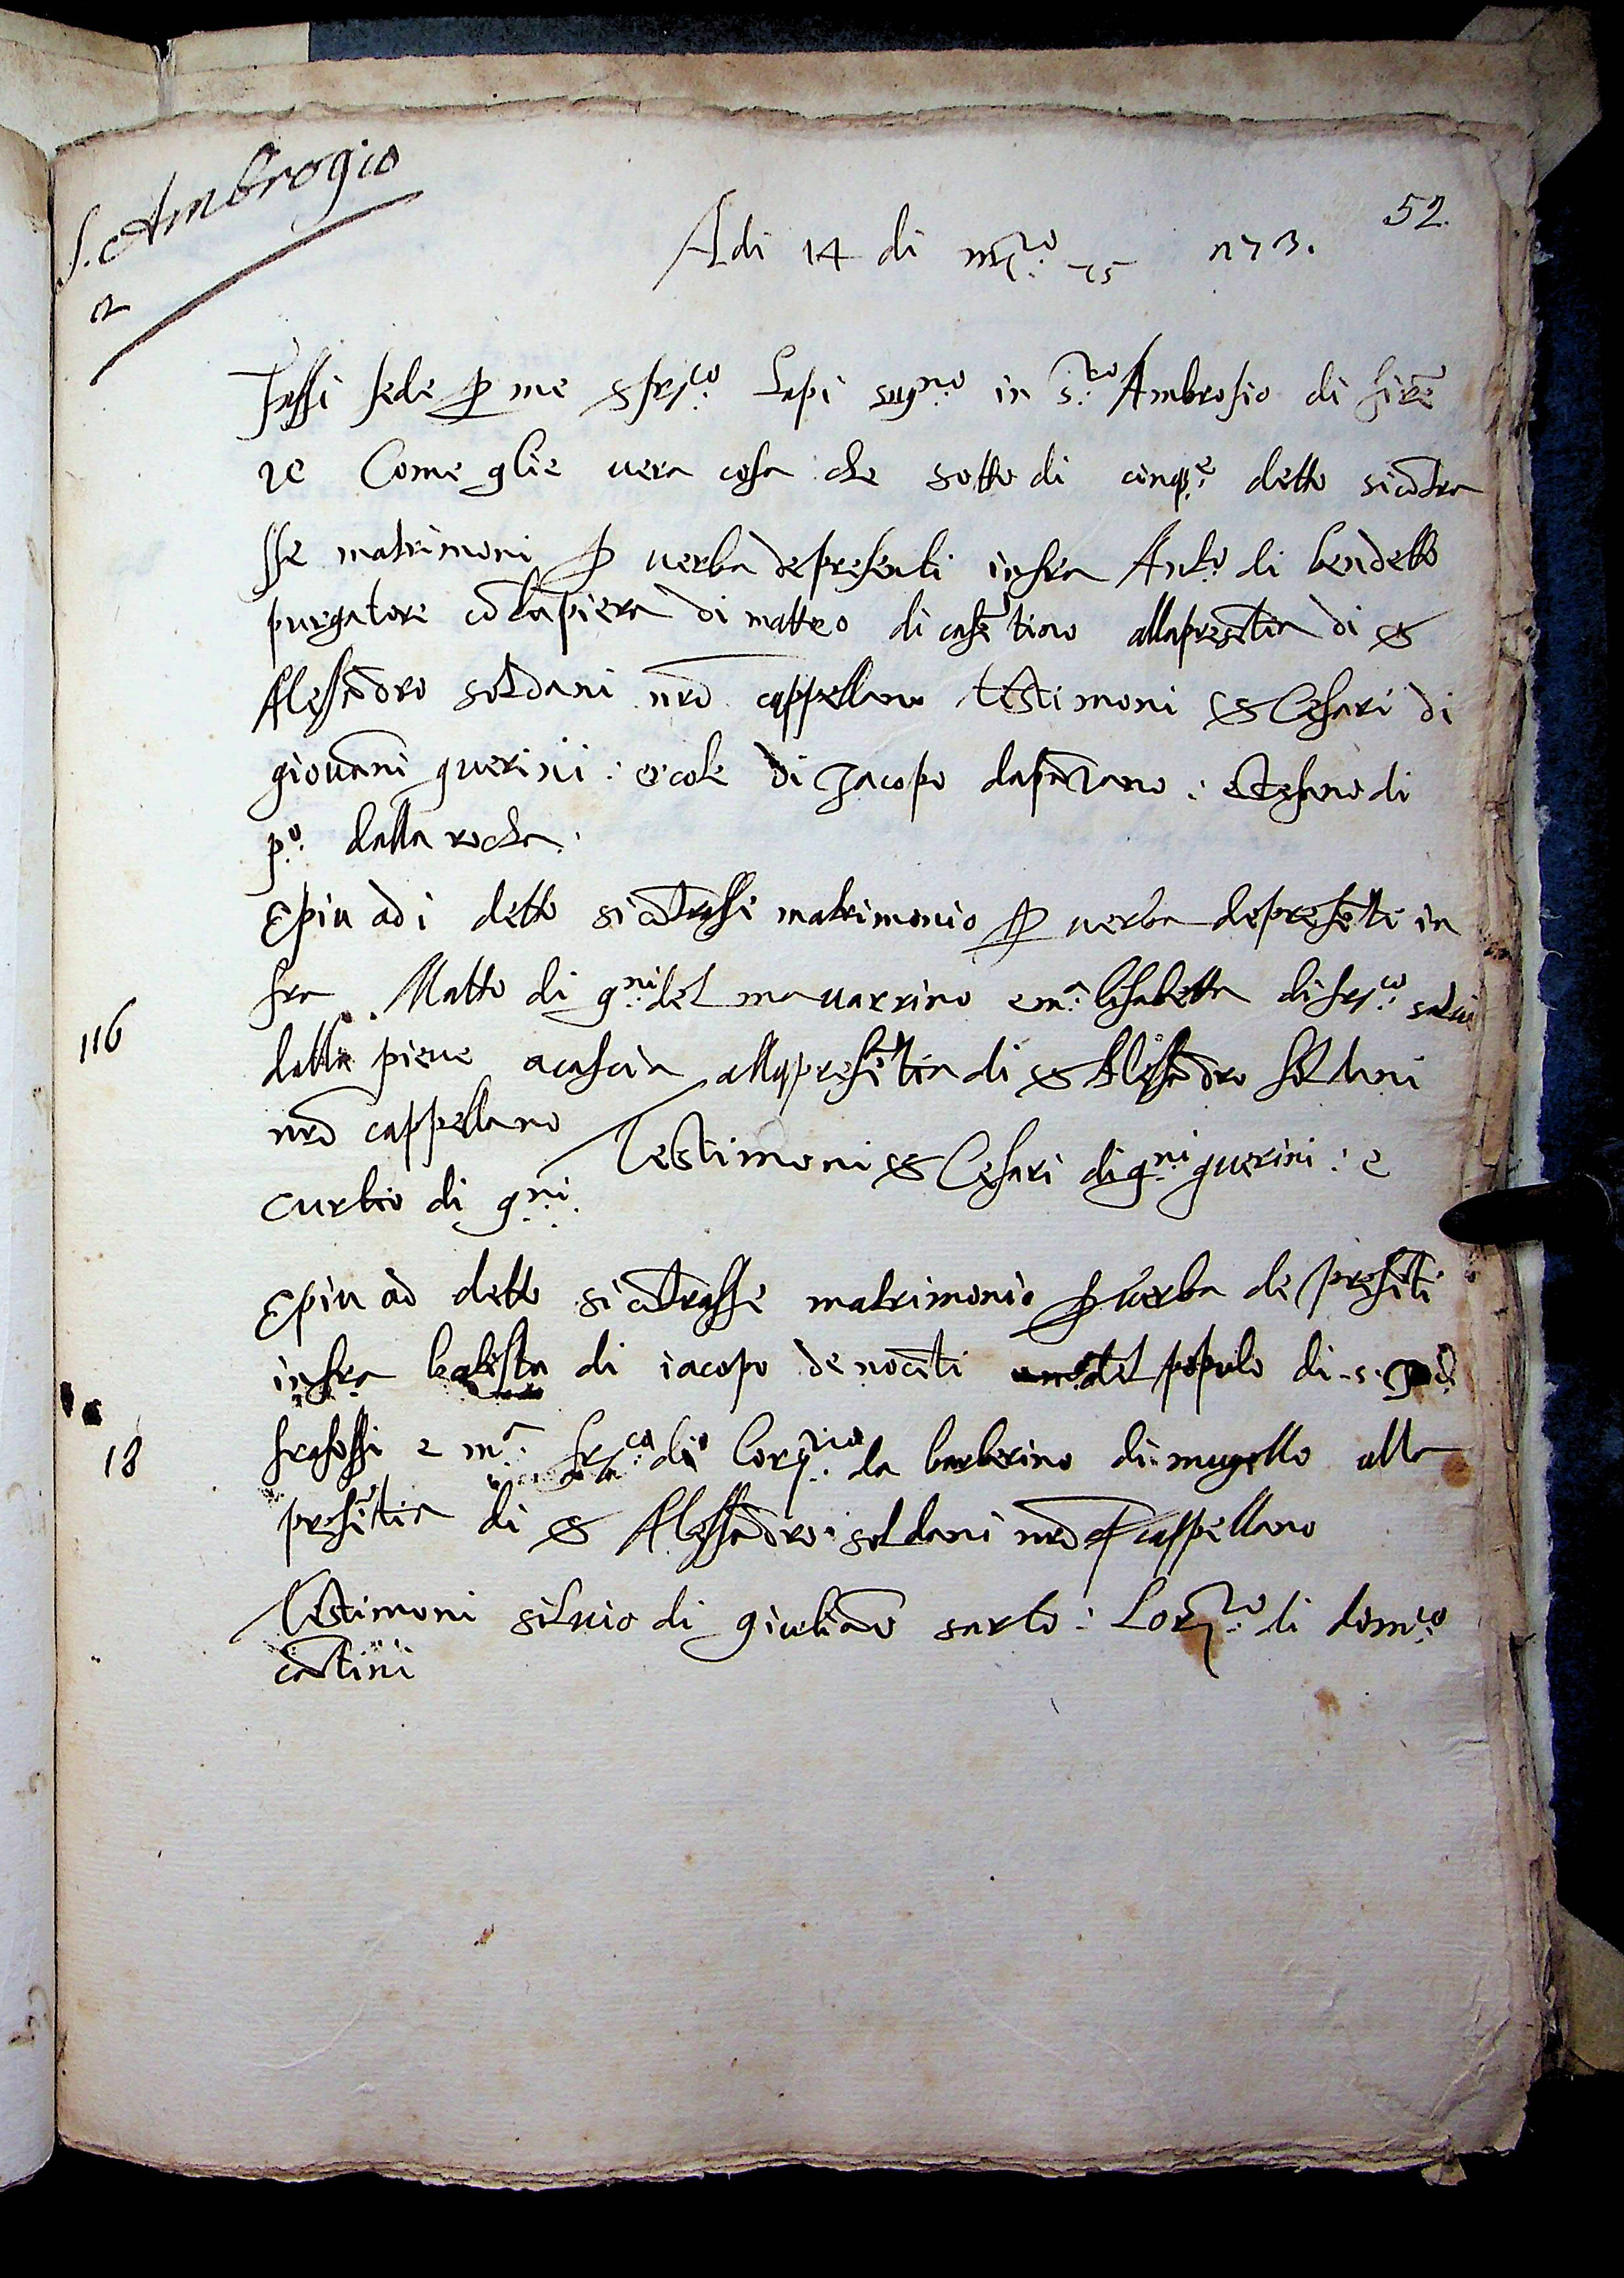 S. Ambrogio
2
52.
Adi 14 di mz.o 75 n 73.
Fassi fede p me s frᵃⁿ.co Lapi sag.no in s.to Ambrosio di fire
ze Come glie vera cosa che sotto di cinq.e detto sicōtra
sse matrimoni p verba depresenti infra Ant.o di bendetto
purgatore cō la piera di matteo di casētino allapresētia di s
Alesādro soldani nrō cappellano testimoni s Cesari di
giovāni guerini : ercole di Jacopo dapāzano : Stefano di
p.o dalla rocha.
Epiu adi detto sicōtrasse matrimonio p verba depresēte in
fra Matto di g.ni del mavarrino e m.a lisabetta di fr.co salvi
dalla pieve acascia allapresētia di s Alesādro soldani
nrō cappellano Testimoni s Cesari di g.ni guerini : e
curtio di g.ni
116
Epiu ad detto sicōtrasse matrimonio p verba de presēti
infra batista di iacopo de nocēti del popolo di s.
frafossi e m.a fr.ca di Lorz.o da barberino di mugello alla
18
presētia di s Alessādro soldani nrō cappellano
Testimoni silvio di giuliāo sarto : Lorz.o di dom.co
cātini